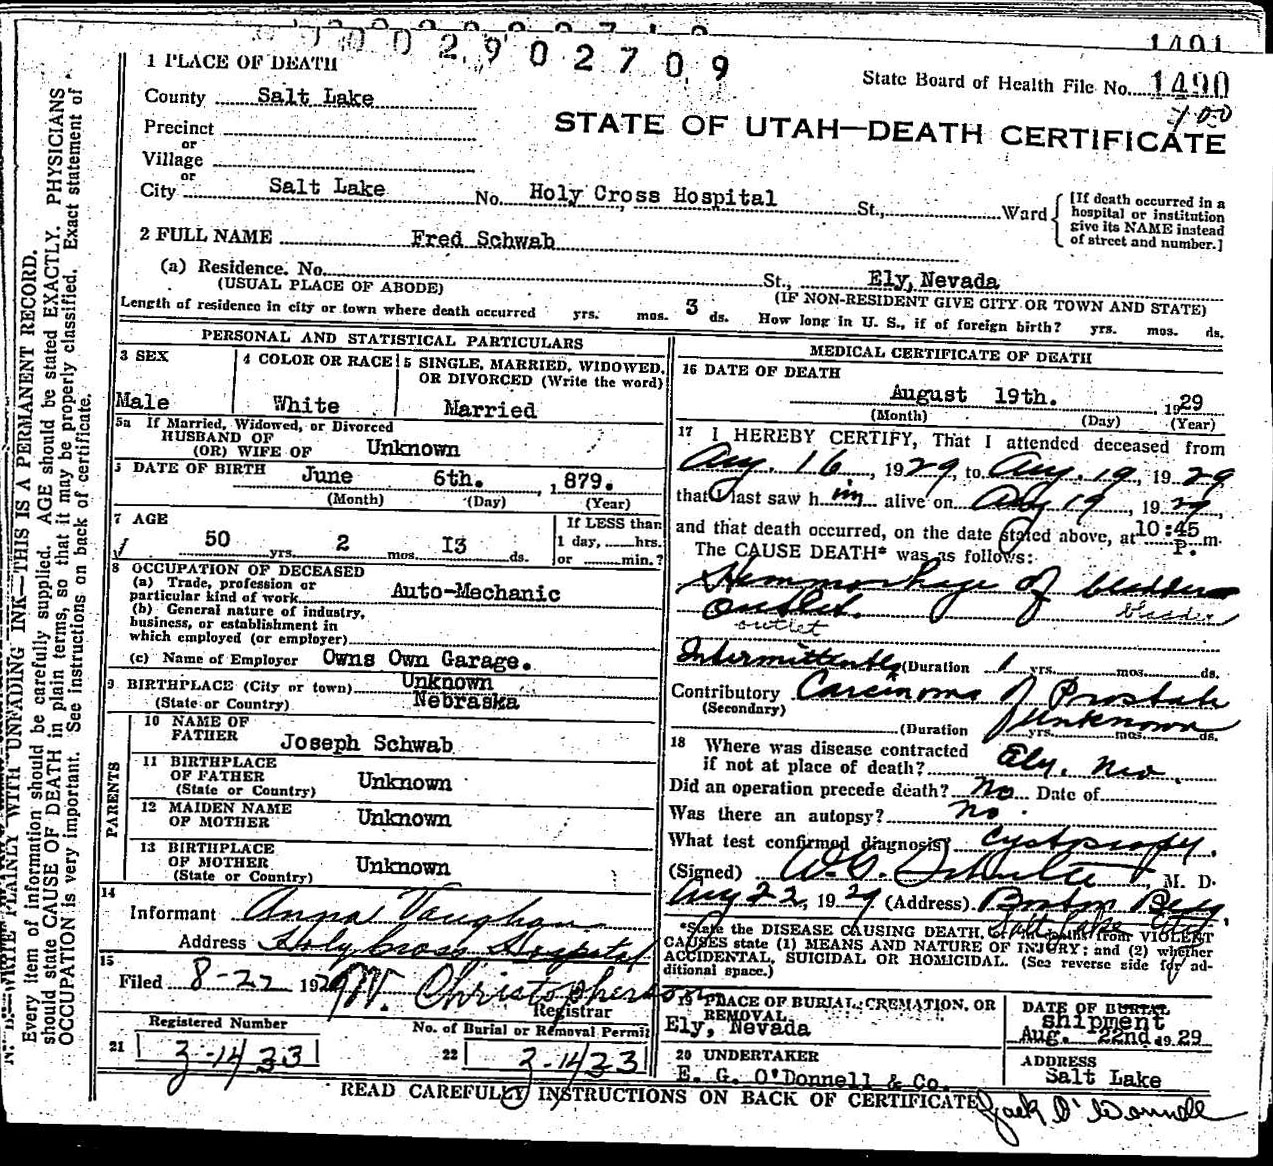 290 02902709
1491
1 PLACE OF DEATH
State Board of Health File No. 1490
County Salt Lake
Precinct
or
Village
or
City Salt Lake No. Holy Cross Hospital St., Ward
STATE OF UTAH—DEATH CERTIFICATE
[If death occurred in a
hospital or institution
give its NAME instead
of street and number.]
2 FULL NAME Fred Schwab
(a) Residence. No. St., Ely, Nevada
(USUAL PLACE OF ABODE) (IF NON-RESIDENT GIVE CITY OR TOWN AND STATE)
Length of residence in city or town where death occurred yrs. mos. 3 ds. How long in U. S., if of foreign birth? yrs. mos. ds.
PERSONAL AND STATISTICAL PARTICULARS
3 SEX
Male
4 COLOR OR RACE
White
5 SINGLE, MARRIED, WIDOWED,
OR DIVORCED (Write the word)
Married
5a If Married, Widowed, or Divorced
HUSBAND OF
(OR) WIFE OF Unknown
DATE OF BIRTH June 6th. 1879.
(Month) (Day) (Year)
7 AGE
50 yrs. 2 mos. I3 ds.
If LESS than
1 day, hrs.
or min.?
8 OCCUPATION OF DECEASED
(a) Trade, profession or
particular kind of work Auto-Mechanic
(b) General nature of industry,
business, or establishment in
which employed (or employer)
(c) Name of Employer Owns Own Garage.
9 BIRTHPLACE (City or town) Unknown
(State or Country) Nebraska
PARENTS
10 NAME OF
FATHER Joseph Schwab
11 BIRTHPLACE
OF FATHER
(State or Country) Unknown
12 MAIDEN NAME
OF MOTHER Unknown
13 BIRTHPLACE
OF MOTHER
(State or Country) Unknown
14
Informant Anna Vaughan
Address Holy Cross Hospital
15
Filed 8-22 1929 W. Christopherson
Registrar
Registered Number
21
No. of Burial or Removal Permit
22
MEDICAL CERTIFICATE OF DEATH
16 DATE OF DEATH
August 19th. 1929
(Month) (Day) (Year)
17 I HEREBY CERTIFY, That I attended deceased from
Aug. 16, 1929, to Aug. 19, 1929
that I last saw him alive on Aug 19, 1929,
and that death occurred, on the date stated above, at 10:45 P. m.
The CAUSE DEATH* was as follows:
Hemmorhage of bladder
outlet. bladder
outlet
Intermittently (Duration 1 yrs. mos. ds.
Contributory Carcinoma of Prostate
(Secondary)
(Duration Unknown yrs. mos. ds.
18 Where was disease contracted
if not at place of death? Ely. Nev.
Did an operation precede death? No Date of
Was there an autopsy? No.
What test confirmed diagnosis? Cystoscopy.
(Signed) M. D.
Aug 22, 1929 (Address) Boston Bldg,
Salt Lake City
*State the DISEASE CAUSING DEATH, or in deaths from VIOLENT
CAUSES state (1) MEANS AND NATURE OF INJURY; and (2) whether
ACCIDENTAL, SUICIDAL OR HOMICIDAL. (See reverse side for ad-
ditional space.)
19 PLACE OF BURIAL, CREMATION, OR
REMOVAL
Ely, Nevada
DATE OF BURIAL
shipment
Aug. 22nd. 1929
20 UNDERTAKER
E. G. O'Donnell & Co.
ADDRESS
Salt Lake
READ CAREFULLY INSTRUCTIONS ON BACK OF CERTIFICATE
Jack O'Donnell
N. B.—WRITE PLAINLY WITH UNFADING INK—THIS IS A PERMANENT RECORD.
Every item of information should be carefully supplied. AGE should be stated EXACTLY. PHYSICIANS
should state CAUSE OF DEATH in plain terms, so that it may be properly classified. Exact statement of
OCCUPATION is very important. See instructions on back of certificate.